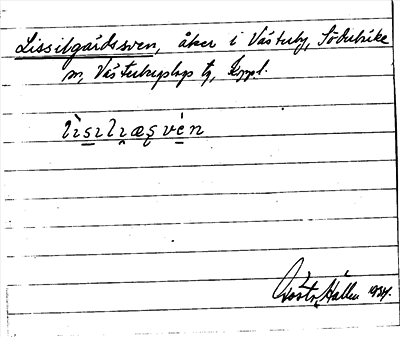 Lissilgårdssven, åker i Västerby, Söderbärke
sn, Västerbergslags tg, Koppl.
lìsılɿæsvén
Gösta Hallén 1934.